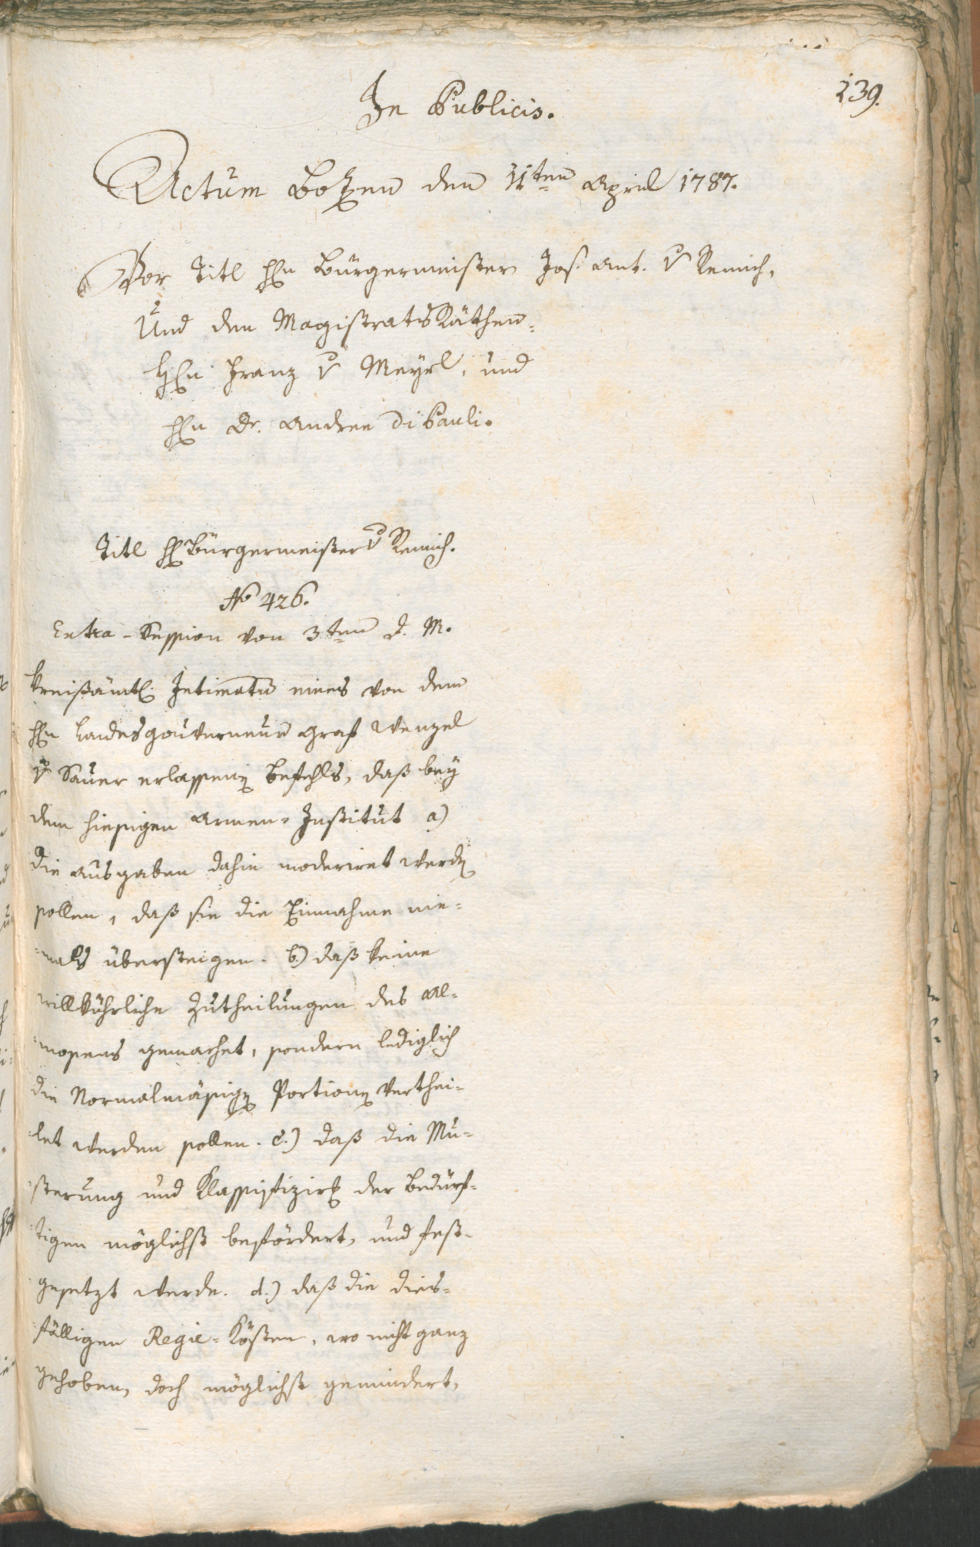 139.
In Publicis.
Actum Botzen den 11ten April 1787.
Vor Titl Hn Bürgermeister Jos. Ant. v Remich,
Und den Magistrats Räthen
Hn Franz v Meyrl, und
Hn Dr. Andree Di Pauli.
Titl H Bürgermeister v Remich.
No 426.
Extra-Session von 3ten d. M.
Kreißämtl. Intimatum eines von dem
Hn Landesgouverneur Graf Wenzel
v Sauer erlassenen Befehls, daß bey
dem hiesigen Armen-Institut a)
die Ausgaben dahin moderiret werden
sollen, daß sie die Einnahme nie-
mals übersteigen. b.) daß keine
willkührliche Zutheilungen des Al-
mosens gemachet, sondern lediglich
die Normalmäsigen Portionen verthei-
let werden sollen. c.) daß die Mu-
sterung und Klassifizirg der Bedürf-
tigen möglichst befördert, und fest-
gesetzt werde. d.) daß die dies-
fälligen Regie-Kösten, wo nicht ganz
gehoben, doch möglichst gemindert,